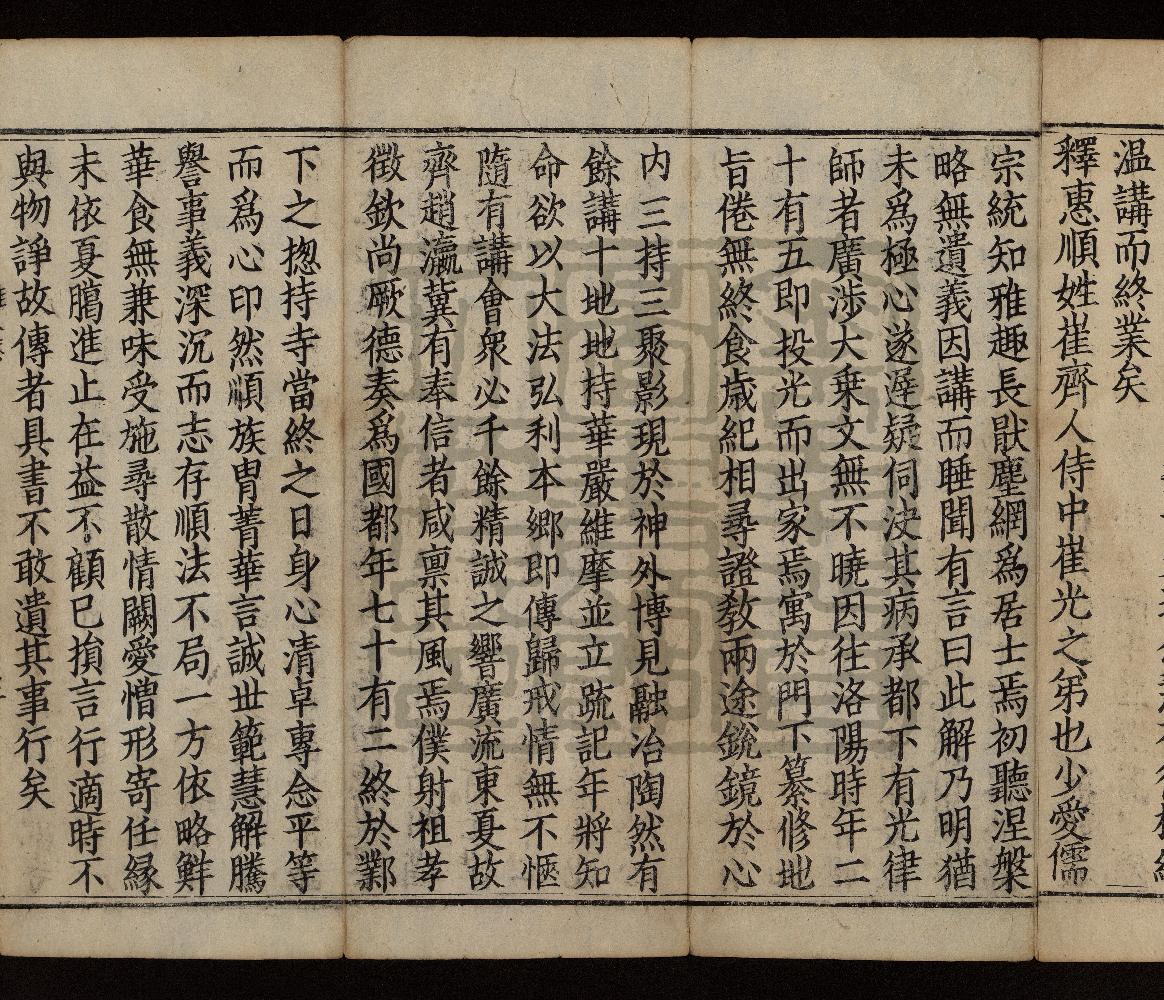 温講而終業矣
釋惠順姓崔齊人侍中崔光之弟也少愛儒
宗統知雅趣長猒塵網爲居士焉初聽涅槃
略無遺義因講而睡聞有言曰此解乃明猶
未爲極心遂遲疑伺決其病承都下有光律
師者廣涉大乗文無不曉因往洛陽時年二
十有五即投光而出家焉寓於門下纂修地
旨倦無終食歳紀相尋證教兩途銳鏡於心
内三持三聚影現於神外博見融冶陶然有
餘講十地地持華嚴維摩並立疏記年將知
命欲以大法弘利本鄉即傳歸戒情無不愜
隨有講會衆必千餘精誠之響廣流東夏故
齊趙瀛冀有奉信者咸禀其風焉僕射祖孝
徵欽尚厥德奏爲國都年七十有二終於鄴
下之揔持寺當終之日身心清卓專念平等
而爲心印然順族胄菁華言誠世範慧解騰
譽事義深沉而志存順法不局一方依略鮮
華食無兼味受施尋散情闕愛憎形寄任緣
末依夏臈進止在益不顧已損言行適時不
與物諍故傳者具書不敢遺其事行矣